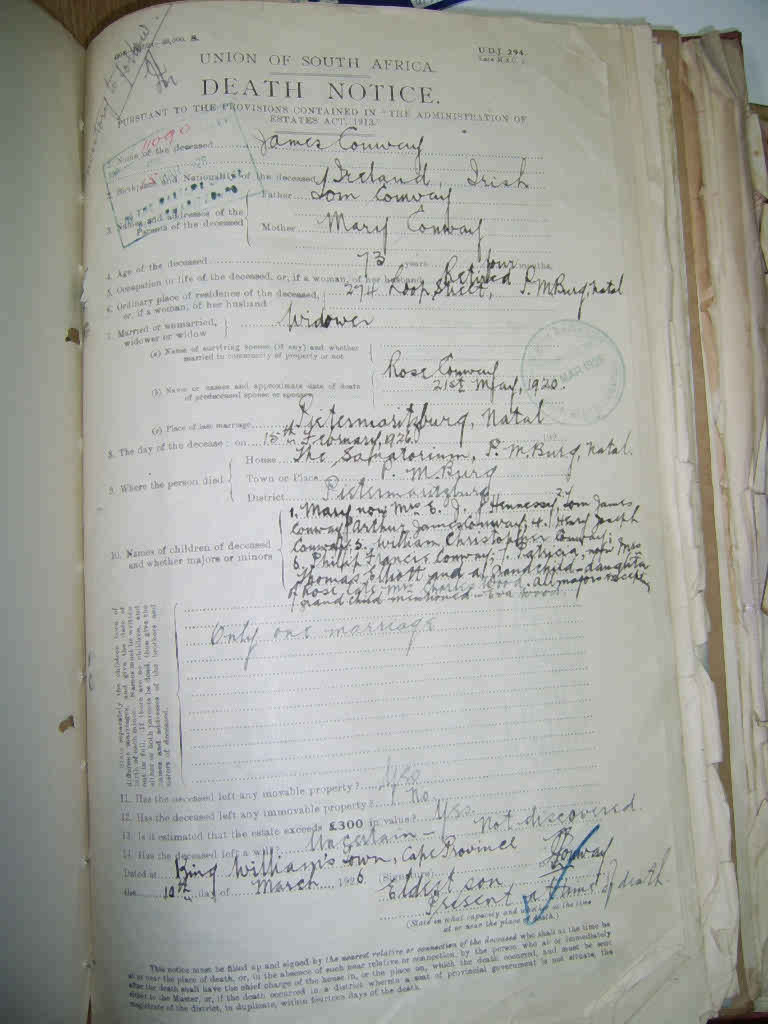 U.D.J. 294.
UNION OF SOUTH AFRICA.
DEATH NOTICE.
PURSUANT TO THE PROVISIONS CONTAINED IN "THE ADMINISTRATION OF
ESTATES ACT, 1913."
1. Name of the deceased James Conway
2. Birthplace and Nationality of the deceased Ireland, Irish
3. Names and addresses of the Parents of the deceased
Father Tom Conway
Mother Mary Conway
4. Age of the deceased 73 years four months.
5. Occupation in life of the deceased, or, if a woman, of her husband Retired
6. Ordinary place of residence of the deceased, or, if a woman, of her husband 274 Loop Street, P. M. Burg, Natal
7. Married or unmarried, widower or widow Widower
(a) Name of surviving spouse (if any) and whether married in community of property or not
(b) Name or names and approximate date of death of predeceased spouse or spouses
Rose Conway
21st May, 1920.
(c) Place of last marriage Pietermaritzburg, Natal
8. The day of the decease: on 15th February, 1926
9. Where the person died
House The Sanatorium, P. M. Burg, Natal.
Town or Place P. M. Burg
District Pietermaritzburg
10. Names of children of deceased and whether majors or minors
1. Mary now Mrs E. J. Hennessy 2. Tom James
Conway Arthur James Conway; 4. Henry Joseph
Conway; 5. William Christopher Conway;
6. Philip Francis Conway; 7. Patricia, now Mrs
Thomas Elliott and a grandchild - daughter
of Rose, late Mrs Charles Wood. All majors except
grandchild mentioned - Eva Wood.
State separately the children born of different marriages, and give the date of birth of each minor. Names must be written out in full. If there are no children, and either or both parents be dead, then give the names and addresses of the brothers and sisters of deceased.
Only one marriage
11. Has the deceased left any movable property? Yes
12. Has the deceased left any immovable property? No
13. Is it estimated that the estate exceeds £300 in value? Yes
14. Has the deceased left a will? Uncertain - Not discovered.
Dated at King William's Town, Cape Province
the 10th day of March 1926 (Signature) Conway
Eldest son
Present at time of death.
(State in what capacity and whether at the time at or near the place of death.)
This notice must be filled up and signed by the nearest relative or connection of the deceased who shall at the time be
at or near the place of death, or, in the absence of such near relative or connection, by the person who at or immediately
after the death shall have the chief charge of the house in, or the place on, which the death occurred, and must be sent
either to the Master, or, if the death occurred in a district wherein a seat of provincial government is not situate, the
magistrate of the district, in duplicate, within fourteen days of the death.